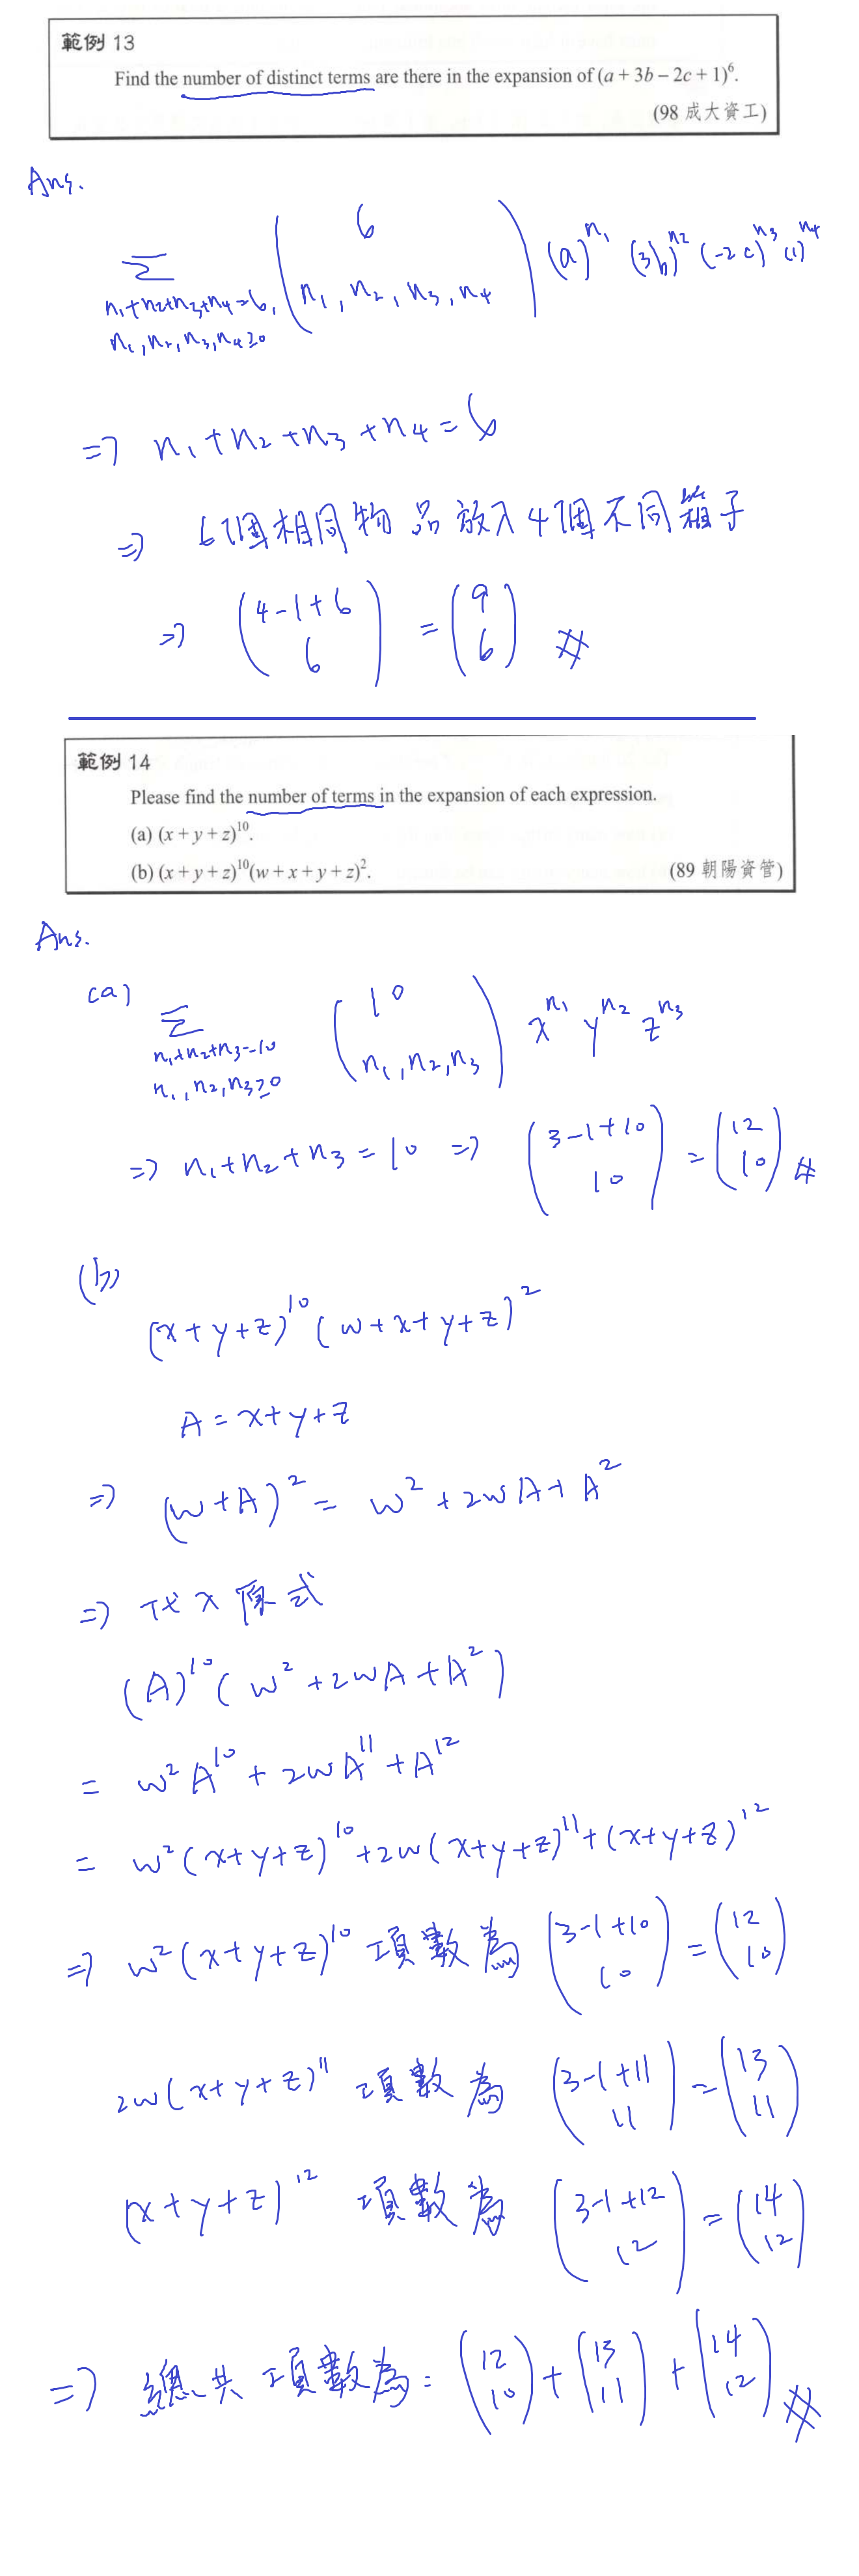 範例 13
Find the number of distinct terms are there in the expansion of (a + 3b – 2c + 1)⁶.
(98 成大資工)
Ans.
Σ_{n₁+n₂+n₃+n₄=6, n₁,n₂,n₃,n₄≥0} (6 / n₁, n₂, n₃, n₄) (a)^{n₁} (3b)^{n₂} (-2c)^{n₃} (1)^{n₄}
⇒ n₁+n₂+n₃+n₄=6
⇒ 6個相同物品放入4個不同箱子
⇒ (4-1+6 / 6) = (9 / 6) #
範例 14
Please find the number of terms in the expansion of each expression.
(a) (x + y + z)¹⁰.
(b) (x + y + z)¹⁰(w + x + y + z)². (89 朝陽資管)
Ans.
(a) Σ_{n₁+n₂+n₃=10, n₁,n₂,n₃≥0} (10 / n₁,n₂,n₃) x^{n₁} y^{n₂} z^{n₃}
⇒ n₁+n₂+n₃=10 ⇒ (3-1+10 / 10) = (12 / 10) #
(b)
(x+y+z)¹⁰(w+x+y+z)²
A=x+y+z
⇒ (w+A)² = w²+2wA+A²
⇒ 代入原式
(A)¹⁰(w²+2wA+A²)
= w²A¹⁰+2wA¹¹+A¹²
= w²(x+y+z)¹⁰+2w(x+y+z)¹¹+(x+y+z)¹²
⇒ w²(x+y+z)¹⁰ 項數為 (3-1+10 / 10) = (12 / 10)
2w(x+y+z)¹¹ 項數為 (3-1+11 / 11) = (13 / 11)
(x+y+z)¹² 項數為 (3-1+12 / 12) = (14 / 12)
⇒ 總共項數為: (12 / 10)+(13 / 11)+(14 / 12) #